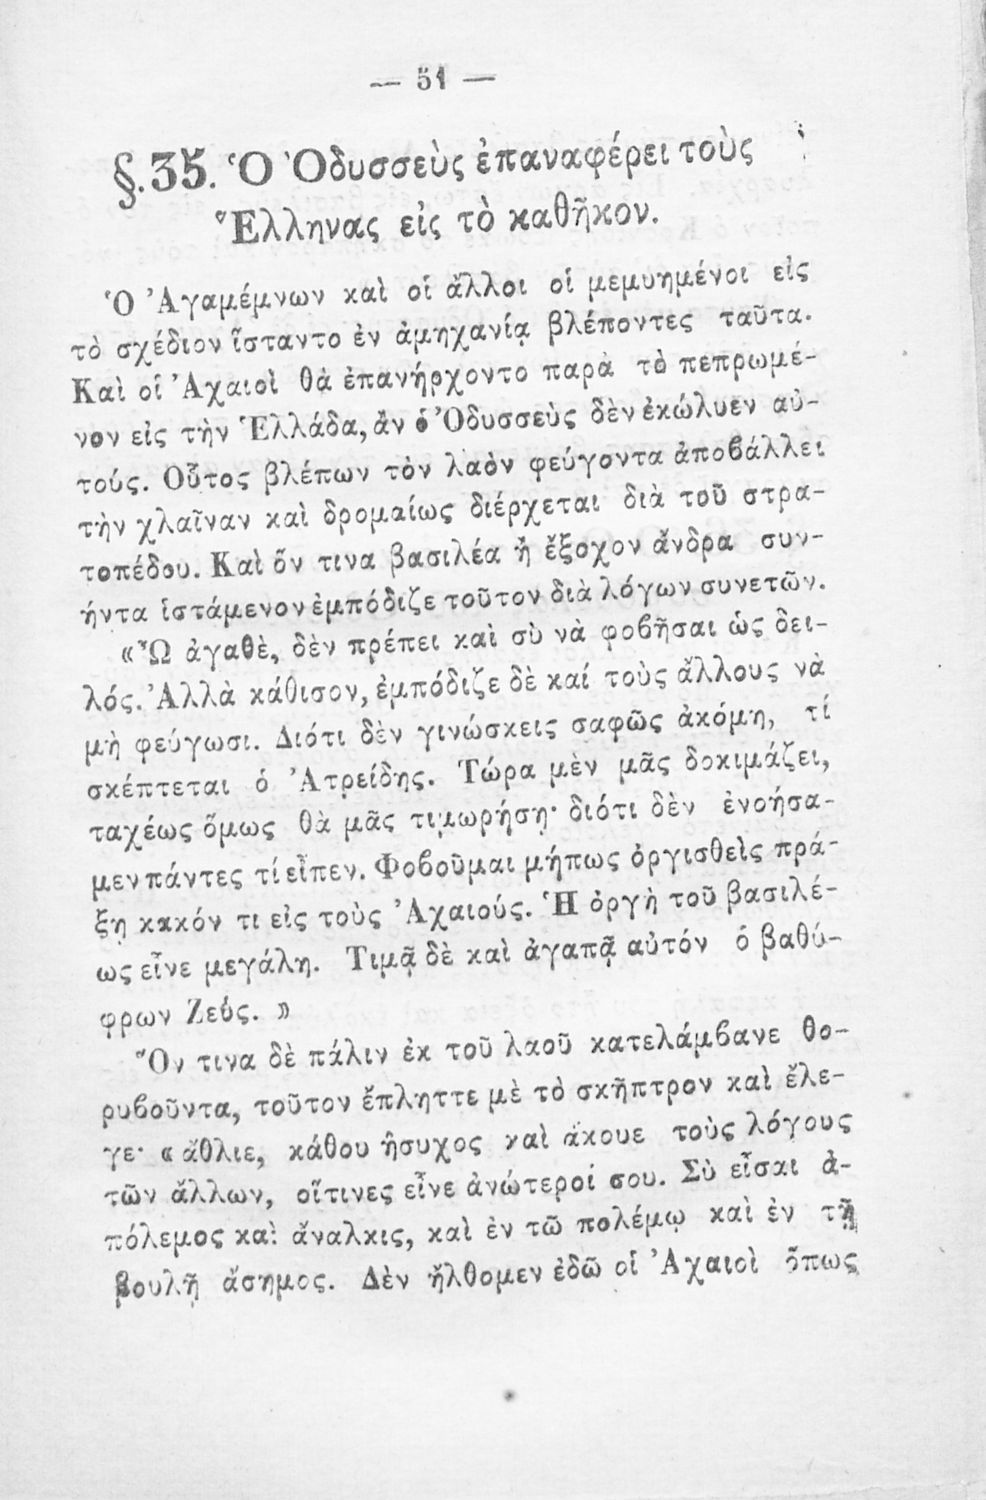 — 51 —
§. 35. Ὁ Ὀδυσσεὺς ἐπαναφέρει τοὺς
Ἕλληνας εἰς τὸ καθῆκον.
Ὁ Ἀγαμέμνων καὶ οἱ ἄλλοι οἱ μεμυημένοι εἰς
τὸ σχέδιον ἵσταντο ἐν ἀμηχανίᾳ βλέποντες ταῦτα.
Καὶ οἱ Ἀχαιοὶ θὰ ἐπανήρχοντο παρὰ τὸ πεπρωμέ-
νον εἰς τὴν Ἑλλάδα, ἂν ὁ Ὀδυσσεὺς δὲν ἐκώλυεν αὐ-
τούς. Οὗτος βλέπων τὸν λαὸν φεύγοντα ἀποβάλλει
τὴν χλαῖναν καὶ δρομαίως διέρχεται διὰ τοῦ στρα-
τοπέδου. Καὶ ὅν τινα βασιλέα ἢ ἔξοχον ἄνδρα συν-
ήντα ἱστάμενον ἐμπόδιζε τοῦτον διὰ λόγων συνετῶν.
«Ὦ ἀγαθὲ, δὲν πρέπει καὶ σὺ νὰ φοβῆσαι ὡς δει-
λός. Ἀλλὰ κάθισον, ἐμπόδιζε δὲ καί τοὺς ἄλλους νὰ
μὴ φεύγωσι. Διότι δὲν γινώσκεις σαφῶς ἀκόμη, τί
σκέπτεται ὁ Ἀτρείδης. Τώρα μὲν μᾶς δοκιμάζει,
ταχέως ὅμως θὰ μᾶς τιμωρήσῃ· διότι δὲν ἐνοήσα-
μεν πάντες τί εἶπεν. Φοβοῦμαι μήπως ὀργισθεὶς πρά-
ξῃ κακόν τι εἰς τοὺς Ἀχαιούς. Ἡ ὀργὴ τοῦ βασιλέ-
ως εἶνε μεγάλη. Τιμᾷ δὲ καὶ ἀγαπᾷ αὐτόν ὁ βαθύ-
φρων Ζεύς. »
Ὅν τινα δὲ πάλιν ἐκ τοῦ λαοῦ κατελάμβανε θο-
ρυβοῦντα, τοῦτον ἔπληττε μὲ τὸ σκῆπτρον καὶ ἔλε-
γε· « ἄθλιε, κάθου ἥσυχος καὶ ἄκουε τοὺς λόγους
τῶν ἄλλων, οἵτινες εἶνε ἀνώτεροί σου. Σὺ εἶσαι ἀ-
πόλεμος καὶ ἄναλκις, καὶ ἐν τῶ πολέμῳ καὶ ἐν τῇ
βουλῇ ἄσημος. Δὲν ἤλθομεν ἐδῶ οἱ Ἀχαιοὶ ὅπως